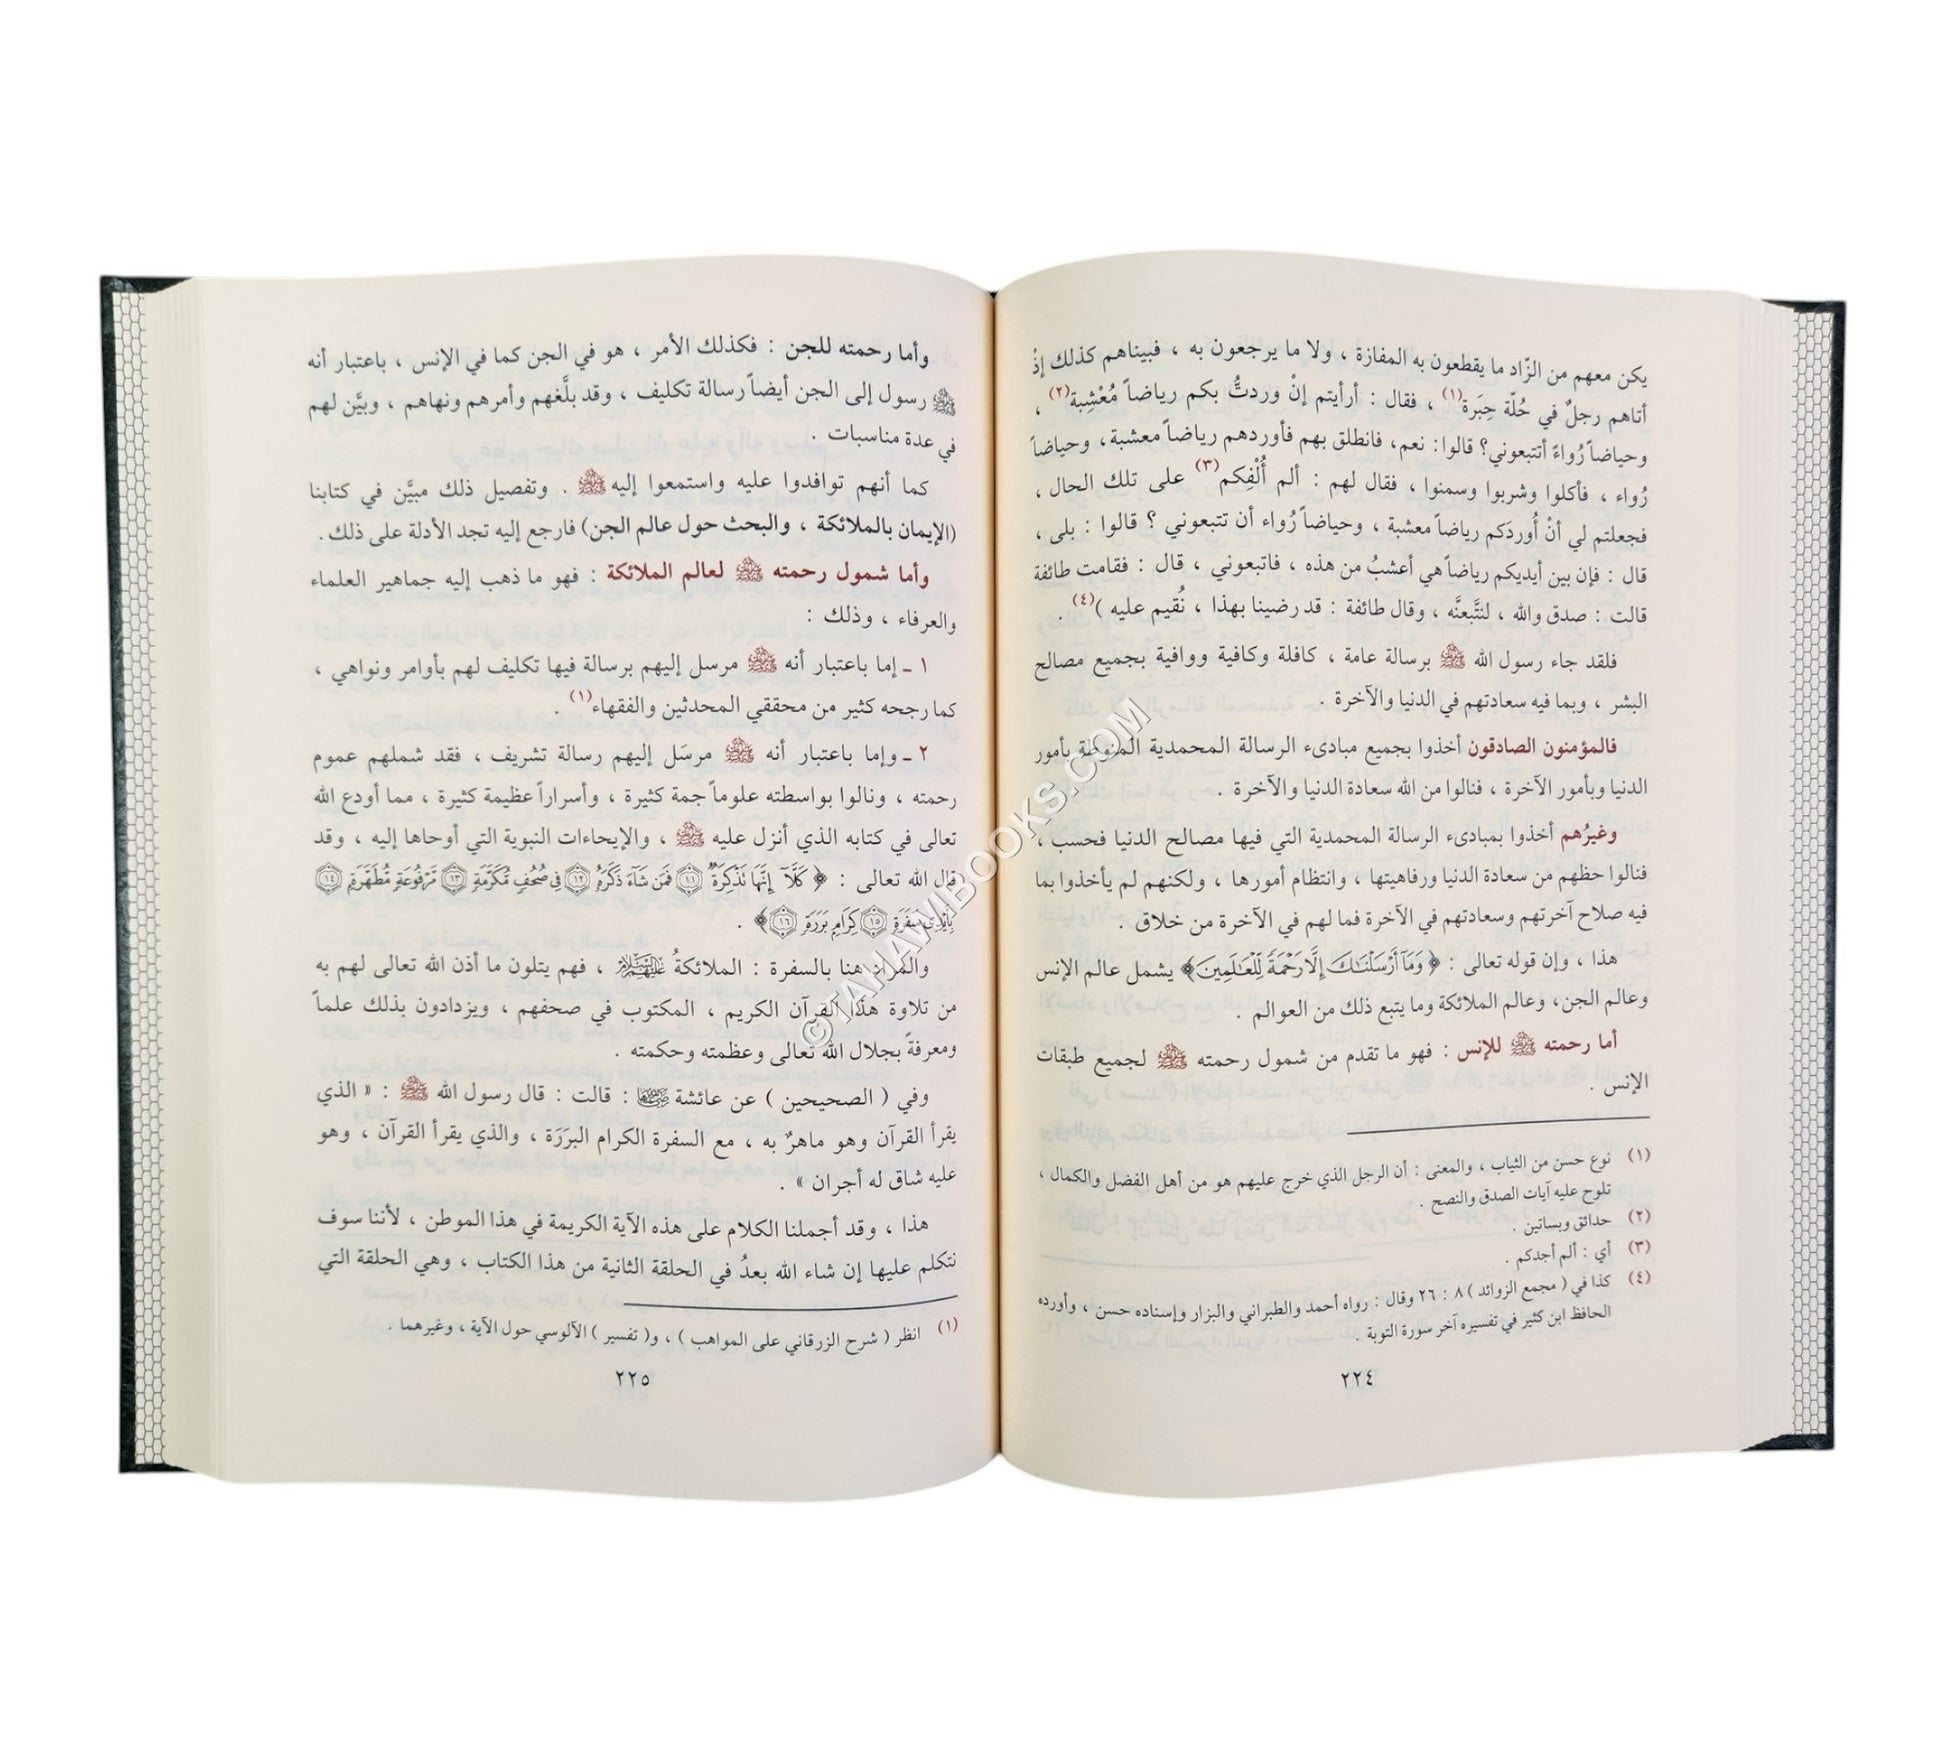 يكن معهم من الزّاد ما يقطعون به المفازة ، ولا ما يرجعون به ، فبيناهم كذلك إذْ
أتاهم رجلٌ في حُلّة حِبَرة(١) ، فقال : أرأيتم إنْ وردتُّ بكم رياضاً مُعْشِبة(٢) ،
وحياضاً رُواءً أتتبعوني؟ قالوا: نعم، فانطلق بهم فأوردهم رياضاً معشبة، وحياضاً
رُواء ، فأكلوا وشربوا وسمنوا ، فقال لهم : ألم أُلْفِكم(٣) على تلك الحال ،
فجعلتم لي أنْ أُوردَكم رياضاً معشبة ، وحياضاً رُواء أن تتبعوني ؟ قالوا : بلى ،
قال : فإن بين أيديكم رياضاً هي أعشبُ من هذه ، فاتبعوني ، قال : فقامت طائفة
قالت : صدق والله ، لنتَّبعنَّه ، وقال طائفة : قد رضينا بهذا ، نُقيم عليه )(٤) .
فلقد جاء رسول الله ﷺ برسالة عامة ، كافلة وكافية ووافية بجميع مصالح
البشر ، وبما فيه سعادتهم في الدنيا والآخرة .
فالمؤمنون الصادقون أخذوا بجميع مبادىء الرسالة المحمدية المنوطة بأمور
الدنيا وبأمور الآخرة ، فنالوا من الله سعادة الدنيا والآخرة .
وغيرُهم أخذوا بمبادىء الرسالة المحمدية التي فيها مصالح الدنيا فحسب ،
فنالوا حظهم من سعادة الدنيا ورفاهيتها ، وانتظام أمورها ، ولكنهم لم يأخذوا بما
فيه صلاح آخرتهم وسعادتهم في الآخرة فما لهم في الآخرة من خلاق .
هذا ، وإن قوله تعالى : ﴿ وَمَآ أَرْسَلْنَٰكَ إِلَّا رَحْمَةً لِّلْعَٰلَمِينَ ﴾ يشمل عالم الإنس
وعالم الجن، وعالم الملائكة وما يتبع ذلك من العوالم .
أما رحمته ﷺ للإنس : فهو ما تقدم من شمول رحمته ﷺ لجميع طبقات
الإنس .
(١) نوع حسن من الثياب ، والمعنى : أن الرجل الذي خرج عليهم هو من أهل الفضل والكمال ،
تلوح عليه آيات الصدق والنصح .
(٢) حدائق وبساتين .
(٣) أي : ألم أجدكم .
(٤) كذا في ( مجمع الزوائد ) ٨ : ٢٦ وقال : رواه أحمد والطبراني والبزار وإسناده حسن ، وأورده
الحافظ ابن كثير في تفسيره آخر سورة التوبة .
٢٢٤
وأما رحمته للجن : فكذلك الأمر ، هو في الجن كما في الإنس ، باعتبار أنه
ﷺ رسول إلى الجن أيضاً رسالة تكليف ، وقد بلَّغهم وأمرهم ونهاهم ، وبيَّن لهم
في عدة مناسبات .
كما أنهم توافدوا عليه واستمعوا إليه ﷺ . وتفصيل ذلك مبيَّن في كتابنا
(الإيمان بالملائكة ، والبحث حول عالم الجن) فارجع إليه تجد الأدلة على ذلك .
وأما شمول رحمته ﷺ لعالم الملائكة : فهو ما ذهب إليه جماهير العلماء
والعرفاء ، وذلك :
١ ـ إما باعتبار أنه ﷺ مرسل إليهم برسالة فيها تكليف لهم بأوامر ونواهي ،
كما رجحه كثير من محققي المحدثين والفقهاء(١) .
٢ ـ وإما باعتبار أنه ﷺ مرسَل إليهم رسالة تشريف ، فقد شملهم عموم
رحمته ، ونالوا بواسطته علوماً جمة كثيرة ، وأسراراً عظيمة كثيرة ، مما أودع الله
تعالى في كتابه الذي أنزل عليه ﷺ ، والإيحاءات النبوية التي أوحاها إليه ، وقد
قال الله تعالى : ﴿ كَلَّآ إِنَّهَا تَذْكِرَةٌ ١١ فَمَن شَآءَ ذَكَرَهُۥ ١٢ فِى صُحُفٍ مُّكَرَّمَةٍ ١٣ مَّرْفُوعَةٍ مُّطَهَّرَةٍۭ ١٤
بِأَيْدِى سَفَرَةٍ ١٥ كِرَامٍۭ بَرَرَةٍ ١٦ ﴾ .
والمراد هنا بالسفرة : الملائكةُ عليهم السلام ، فهم يتلون ما أذن الله تعالى لهم به
من تلاوة هذا القرآن الكريم ، المكتوب في صحفهم ، ويزدادون بذلك علماً
ومعرفةً بجلال الله تعالى وعظمته وحكمته .
وفي ( الصحيحين ) عن عائشة رضي الله عنها : قالت : قال رسول الله ﷺ : « الذي
يقرأ القرآن وهو ماهرٌ به ، مع السفرة الكرام البرَرَة ، والذي يقرأ القرآن ، وهو
عليه شاق له أجران » .
هذا ، وقد أجملنا الكلام على هذه الآية الكريمة في هذا الموطن ، لأننا سوف
نتكلم عليها إن شاء الله بعدُ في الحلقة الثانية من هذا الكتاب ، وهي الحلقة التي
(١) انظر ( شرح الزرقاني على المواهب ) ، و( تفسير ) الآلوسي حول الآية ، وغيرهما .
٢٢٥
©TAHAWIBOOKS.COM